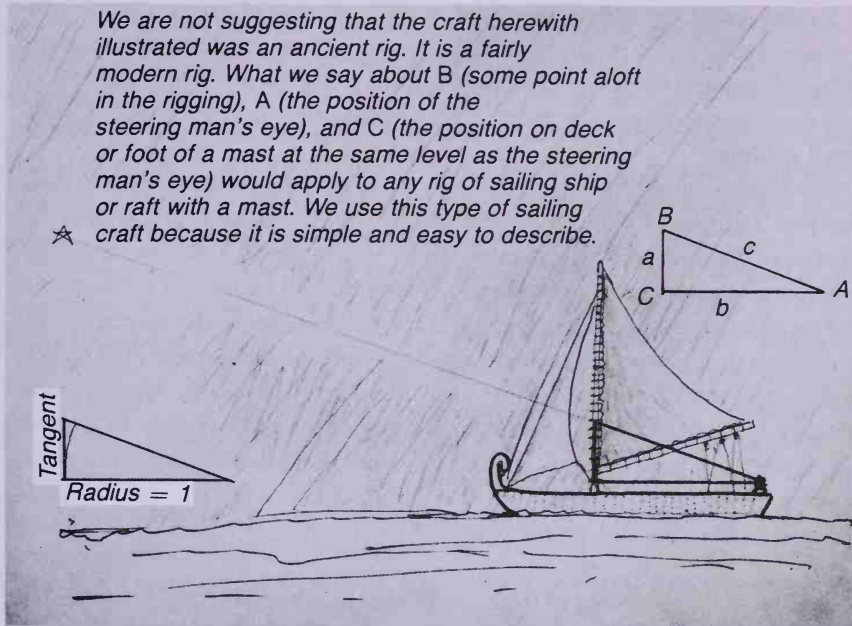 We are not suggesting that the craft herewith
illustrated was an ancient rig. It is a fairly
modern rig. What we say about B (some point aloft
in the rigging), A (the position of the
steering man's eye), and C (the position on deck
or foot of a mast at the same level as the steering
man's eye) would apply to any rig of sailing ship
or raft with a mast. We use this type of sailing
☆ craft because it is simple and easy to describe.
B
a
c
C
A
b
Tangent
Radius = 1